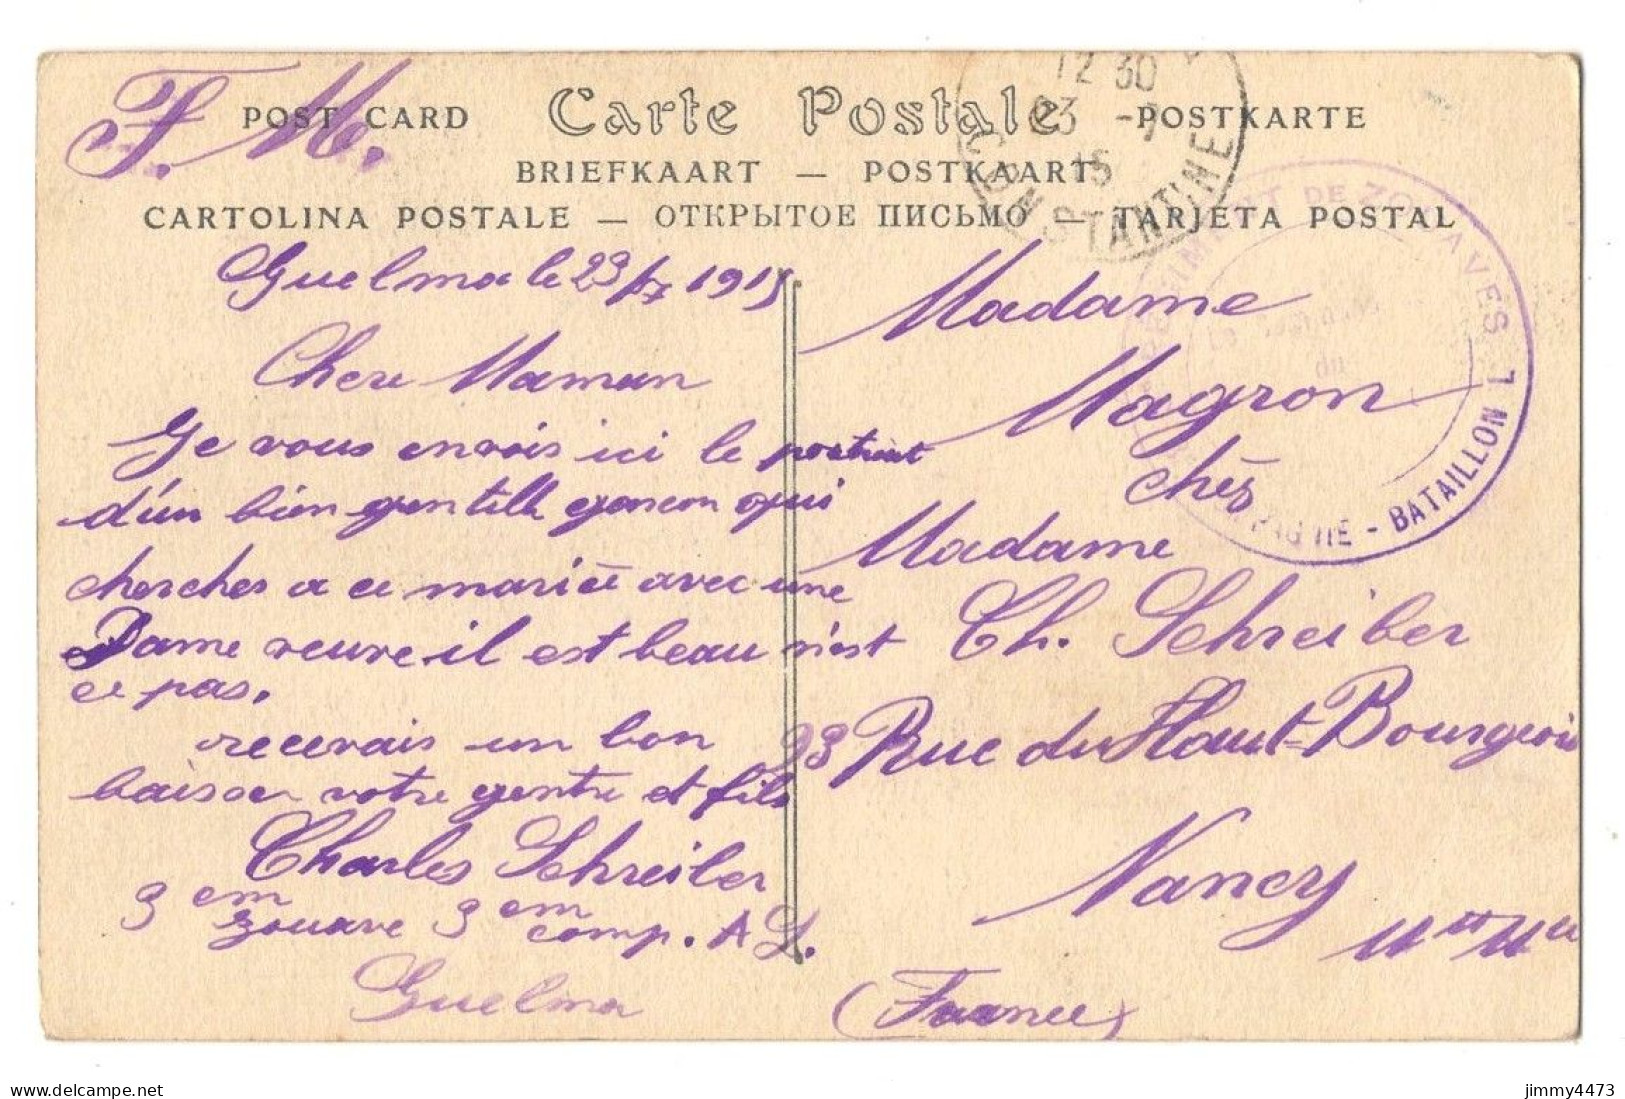 F. M.
POST CARD Carte Postale POSTKARTE
BRIEFKAART — POSTKAART
CARTOLINA POSTALE — ОТКРЫТОЕ ПИСЬМО — TARJETA POSTAL
12 30
23 -7
15
CONSTANTINE
REGIMENT DE ZOUAVES
du
COMPAGNIE - BATAILLON
Guelma le 23/7 1915
Chere Maman
Je vous envois ici le portrait
d'un bien gentille garcon qui
cherches a ce mariée avec une
Dame veuve il est beau n'est
ce pas.
recevais un bon
baiser votre gentre et fils
Charles Schreiber
3 em zouave 3 em comp. A L.
Guelma
Madame
Magron
chés
Madame
Ch. Schreiber
93 Rue du Haut-Bourgeois
Nancy
Mtt Mll
(France)
jimmy4473